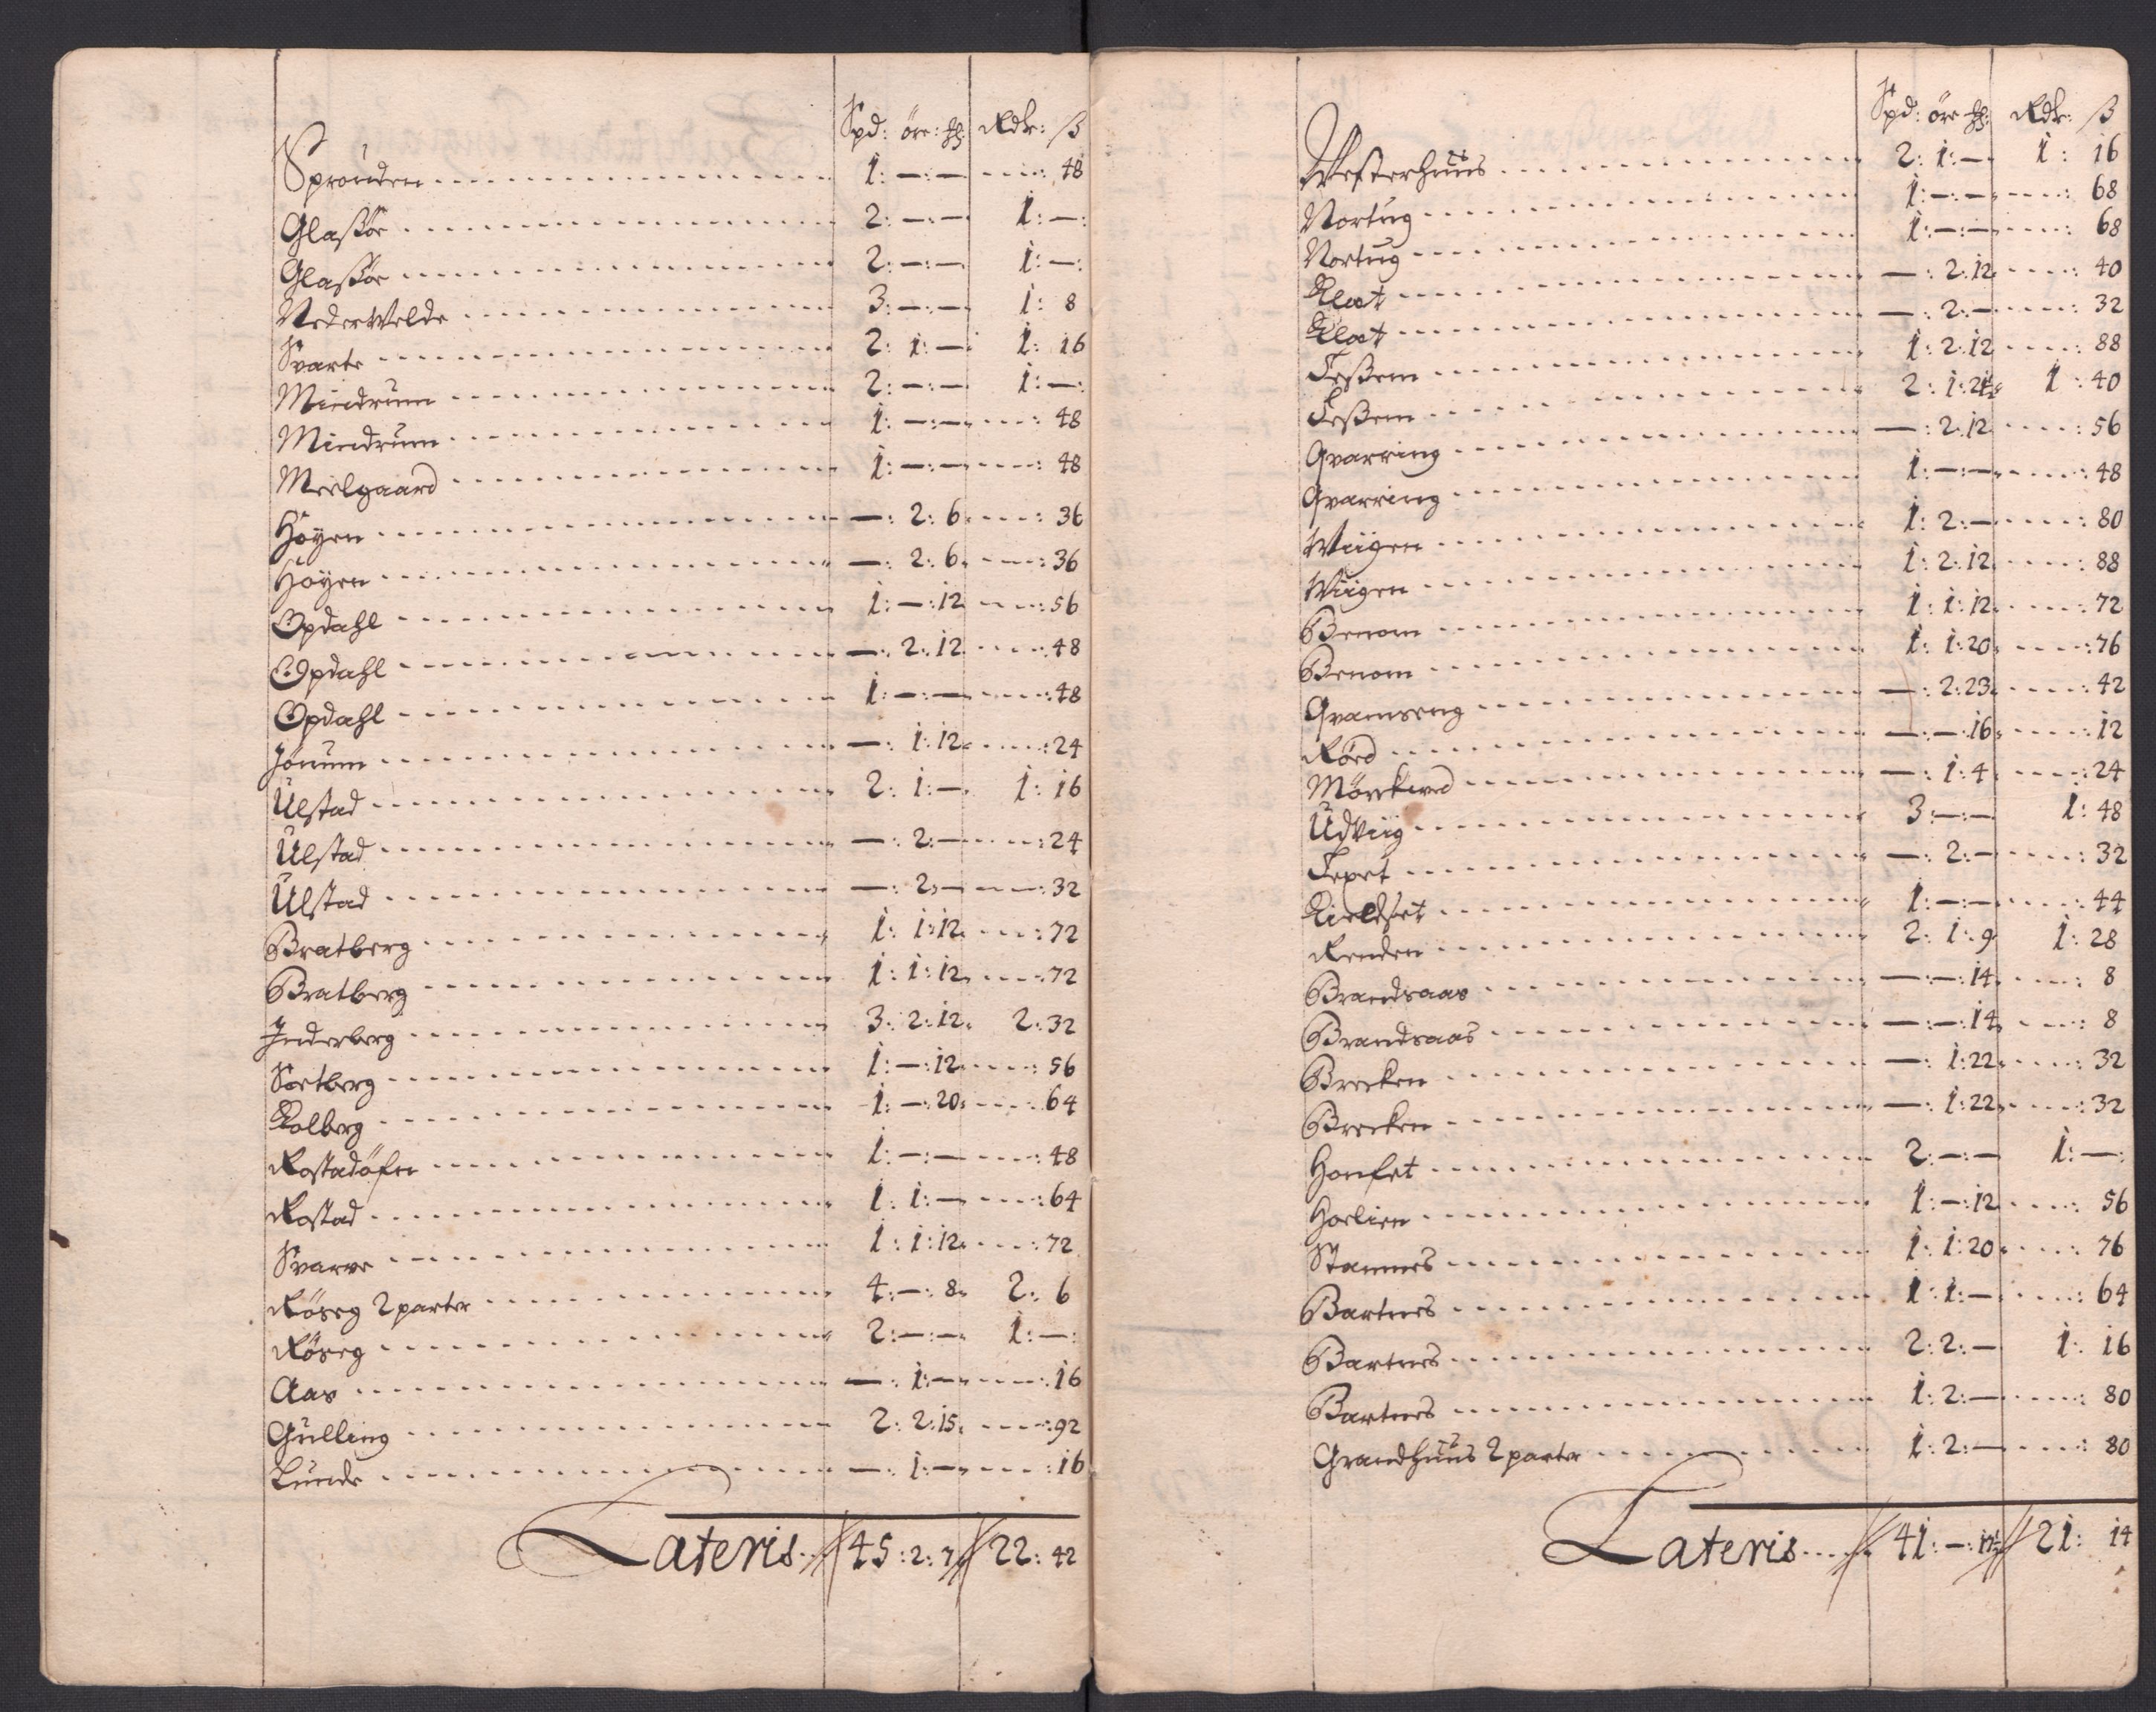 Spd: öre: ℔: Rdr: ß
Sprouden 1: —: — ....: 48
Glaßör 2: —: — 1: —:
Glaßör 2: —: — 1: —:
Nederwelde 3: —: — 1: 8
Svarte 2: 1: — 1: 16
Mindrum 2: —: — 1: —:
Mindrum 1: —: — ....: 48
Meelgaard 1: —: — ....: 48
Höyen —: 2: 6 ....: 36
Höyen —: 2: 6 ....: 36
Opdahl 1: —: 12 ....: 56
Opdahl —: 2: 12 ....: 48
Opdahl 1: —: — ....: 48
Jönum —: 1: 12 ....: 24
Ulstad 2: 1: — 1: 16
Ulstad —: 2: — ....: 24
Ulstad —: 2: — ....: 32
Bratberg 1: 1: 12 ....: 72
Bratberg 1: 1: 12 ....: 72
Inderberg 3: 2: 12 2: 32
Sortberg 1: —: 12 ....: 56
Kolberg 1: —: 20 ....: 64
Rostadöfen 1: —: — ....: 48
Rostad 1: 1: — ....: 64
Svarve 1: 1: 12 ....: 72
Röseg 2 parter 4: —: 8 2: 6
Röseg 2: —: — 1: —:
Aas —: 1: — ....: 16
Gulling 2: 2: 15 ....: 92
Lunde —: 1: — ....: 16
Lateris 45: 2: 7 22: 42
Spd: öre ℔: Rdr: ß
Westerhuus 2: 1: — 1: 16
Nortug 1: —: — ....: 68
Nortug 1: —: — ....: 68
Klat —: 2: 12 ....: 40
Klat —: 2: — ....: 32
Teßem 1: 2: 12 ....: 88
Teßem 2: 1: 1: 40
Qvarring —: 2: 12 ....: 56
Qvarring 1: —: — ....: 48
Wiigen 1: 2: — ....: 80
Wiigen 1: 2: 12 ....: 88
Benom 1: 1: 12 ....: 72
Benom 1: 1: 20 ....: 76
Qvamseng —: 2: 23 ....: 42
Röed —: —: 16 ....: 12
Mörckved —: 1: 4 ....: 24
Udviig 3: —: — 1: 48
Tepet —: 2: — ....: 32
Kieldset 1: —: — ....: 44
Renden 2: 1: 9 1: 28
Brandsaas —: —: 14 ....: 8
Brandsaas —: —: 14 ....: 8
Brecken —: 1: 22 ....: 32
Brecken —: 1: 22 ....: 32
Honset 2: —: — 1: —:
Hoelien 1: —: 12 ....: 56
Stamnes 1: 1: 20 ....: 76
Bartnes 1: 1: — ....: 64
Bartnes 2: 2: — 1: 16
Bartnes 1: 2: — ....: 80
Grandhuus 2 parter 1: 2: — ....: 80
Lateris 41: —: 21: 14